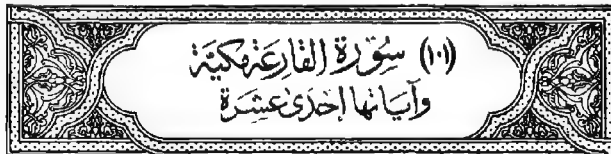 (١٠١) سُوْرَة القَارِعَة مَكِيَّة
وَآيَاتُهَا إِحْدَى عَشِرَة